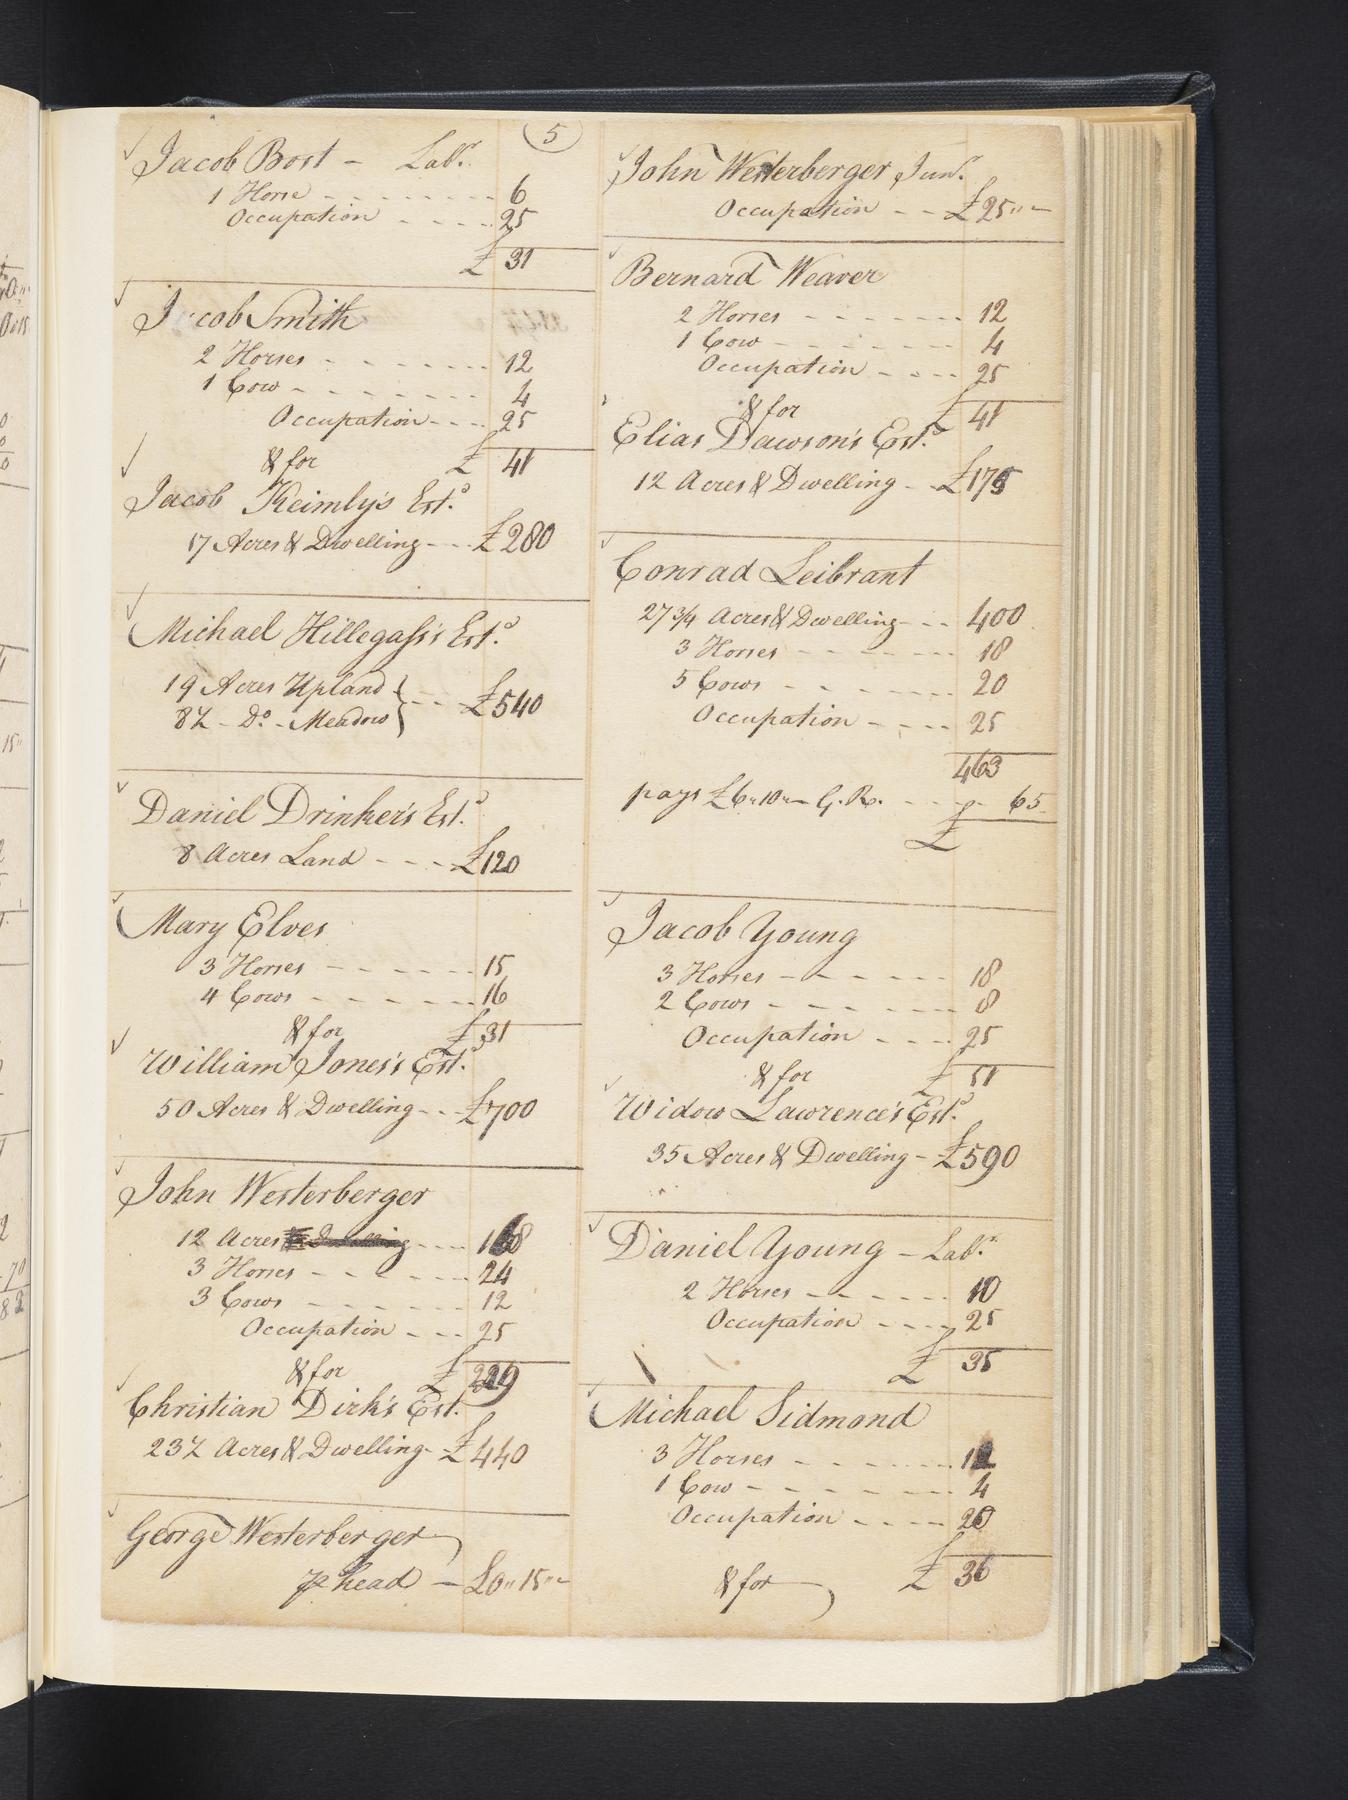 5
Jacob Bost – Labr.
1 Horse - - - - - - - - 6
Occupation - - - - - 25
£ 31
Jacob Smith
2 Horses - - - - - - - 12
1 Cow - - - - - - - - 4
Occupation - - - - 25
& for £ 41
Jacob Keimly's Estd.
17 Acres & Dwelling - - - £280
Michael Hillegass's Estd.
19 Acres Upland
8½ - Do - Meadow } - - - £540
Daniel Drinker's Estd.
8 Acres Land - - - - £120
Mary Elves
3 Horses - - - - - - 15
4 Cows - - - - - - - 16
& for £ 31
William Jones's Estd.
50 Acres & Dwelling - - - £700
John Westerberger
12 Acres & Dwelling - - - - 168
3 Horses - - - - - - 24
3 Cows - - - - - - - 12
Occupation - - - - 25
& for £ 229
Christian Dirk's Estd.
23½ Acres & Dwelling - £440
George Westerberger
⅌ head – £0,, 15,, –
John Westerberger Junr.
Occupation - - £25,, –
Bernard Weaver
2 Horses - - - - - - - 12
1 Cow - - - - - - - 4
Occupation - - - - 25
& for £ 41
Elias Dawson's Estd.
12 Acres & Dwelling - - £175
Conrad Leibrant
27¾ Acres & Dwelling - - - 400
3 Horses - - - - - - - 18
5 Cows - - - - - - - 20
Occupation - - - - 25
463
pays £6,, 10,, – G. R. - - - - 65
£
Jacob Young
3 Horses - - - - - - - 18
2 Cows - - - - - - - 8
Occupation - - - - 25
& for £ 51
Widow Lawrence's Estd.
35 Acres & Dwelling – £590
Daniel Young – Labr.
2 Horses - - - - - - 10
Occupation - - - - 25
£ 35
Michael Sidmond
3 Horses - - - - - - - 12
1 Cow - - - - - - - - 4
Occupation - - - - 20
& for £ 36